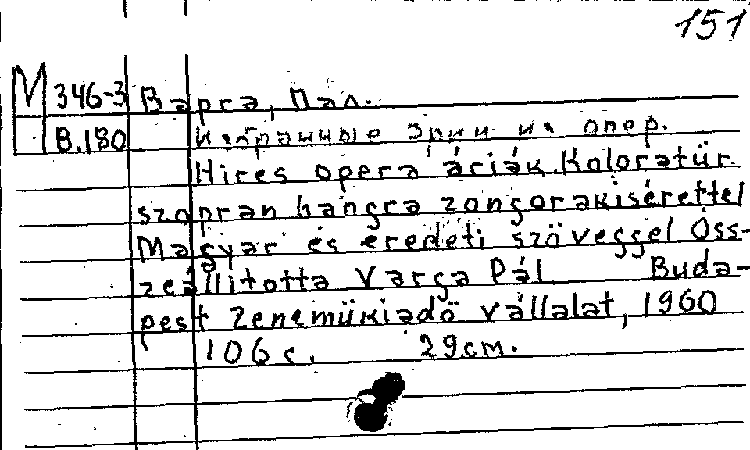 151
М 346-3 Варга, Пал.
В.180 Избранные Арии из опер.
Hires opera áriák Koloratúr
szoprán hangra zongorakisérettel
Magyar és eredeti szöveggel Öss-
zeállitotta Varga Pál Buda-
pest Zeneműkiadó vállalat, 1960
106 с. 29см.